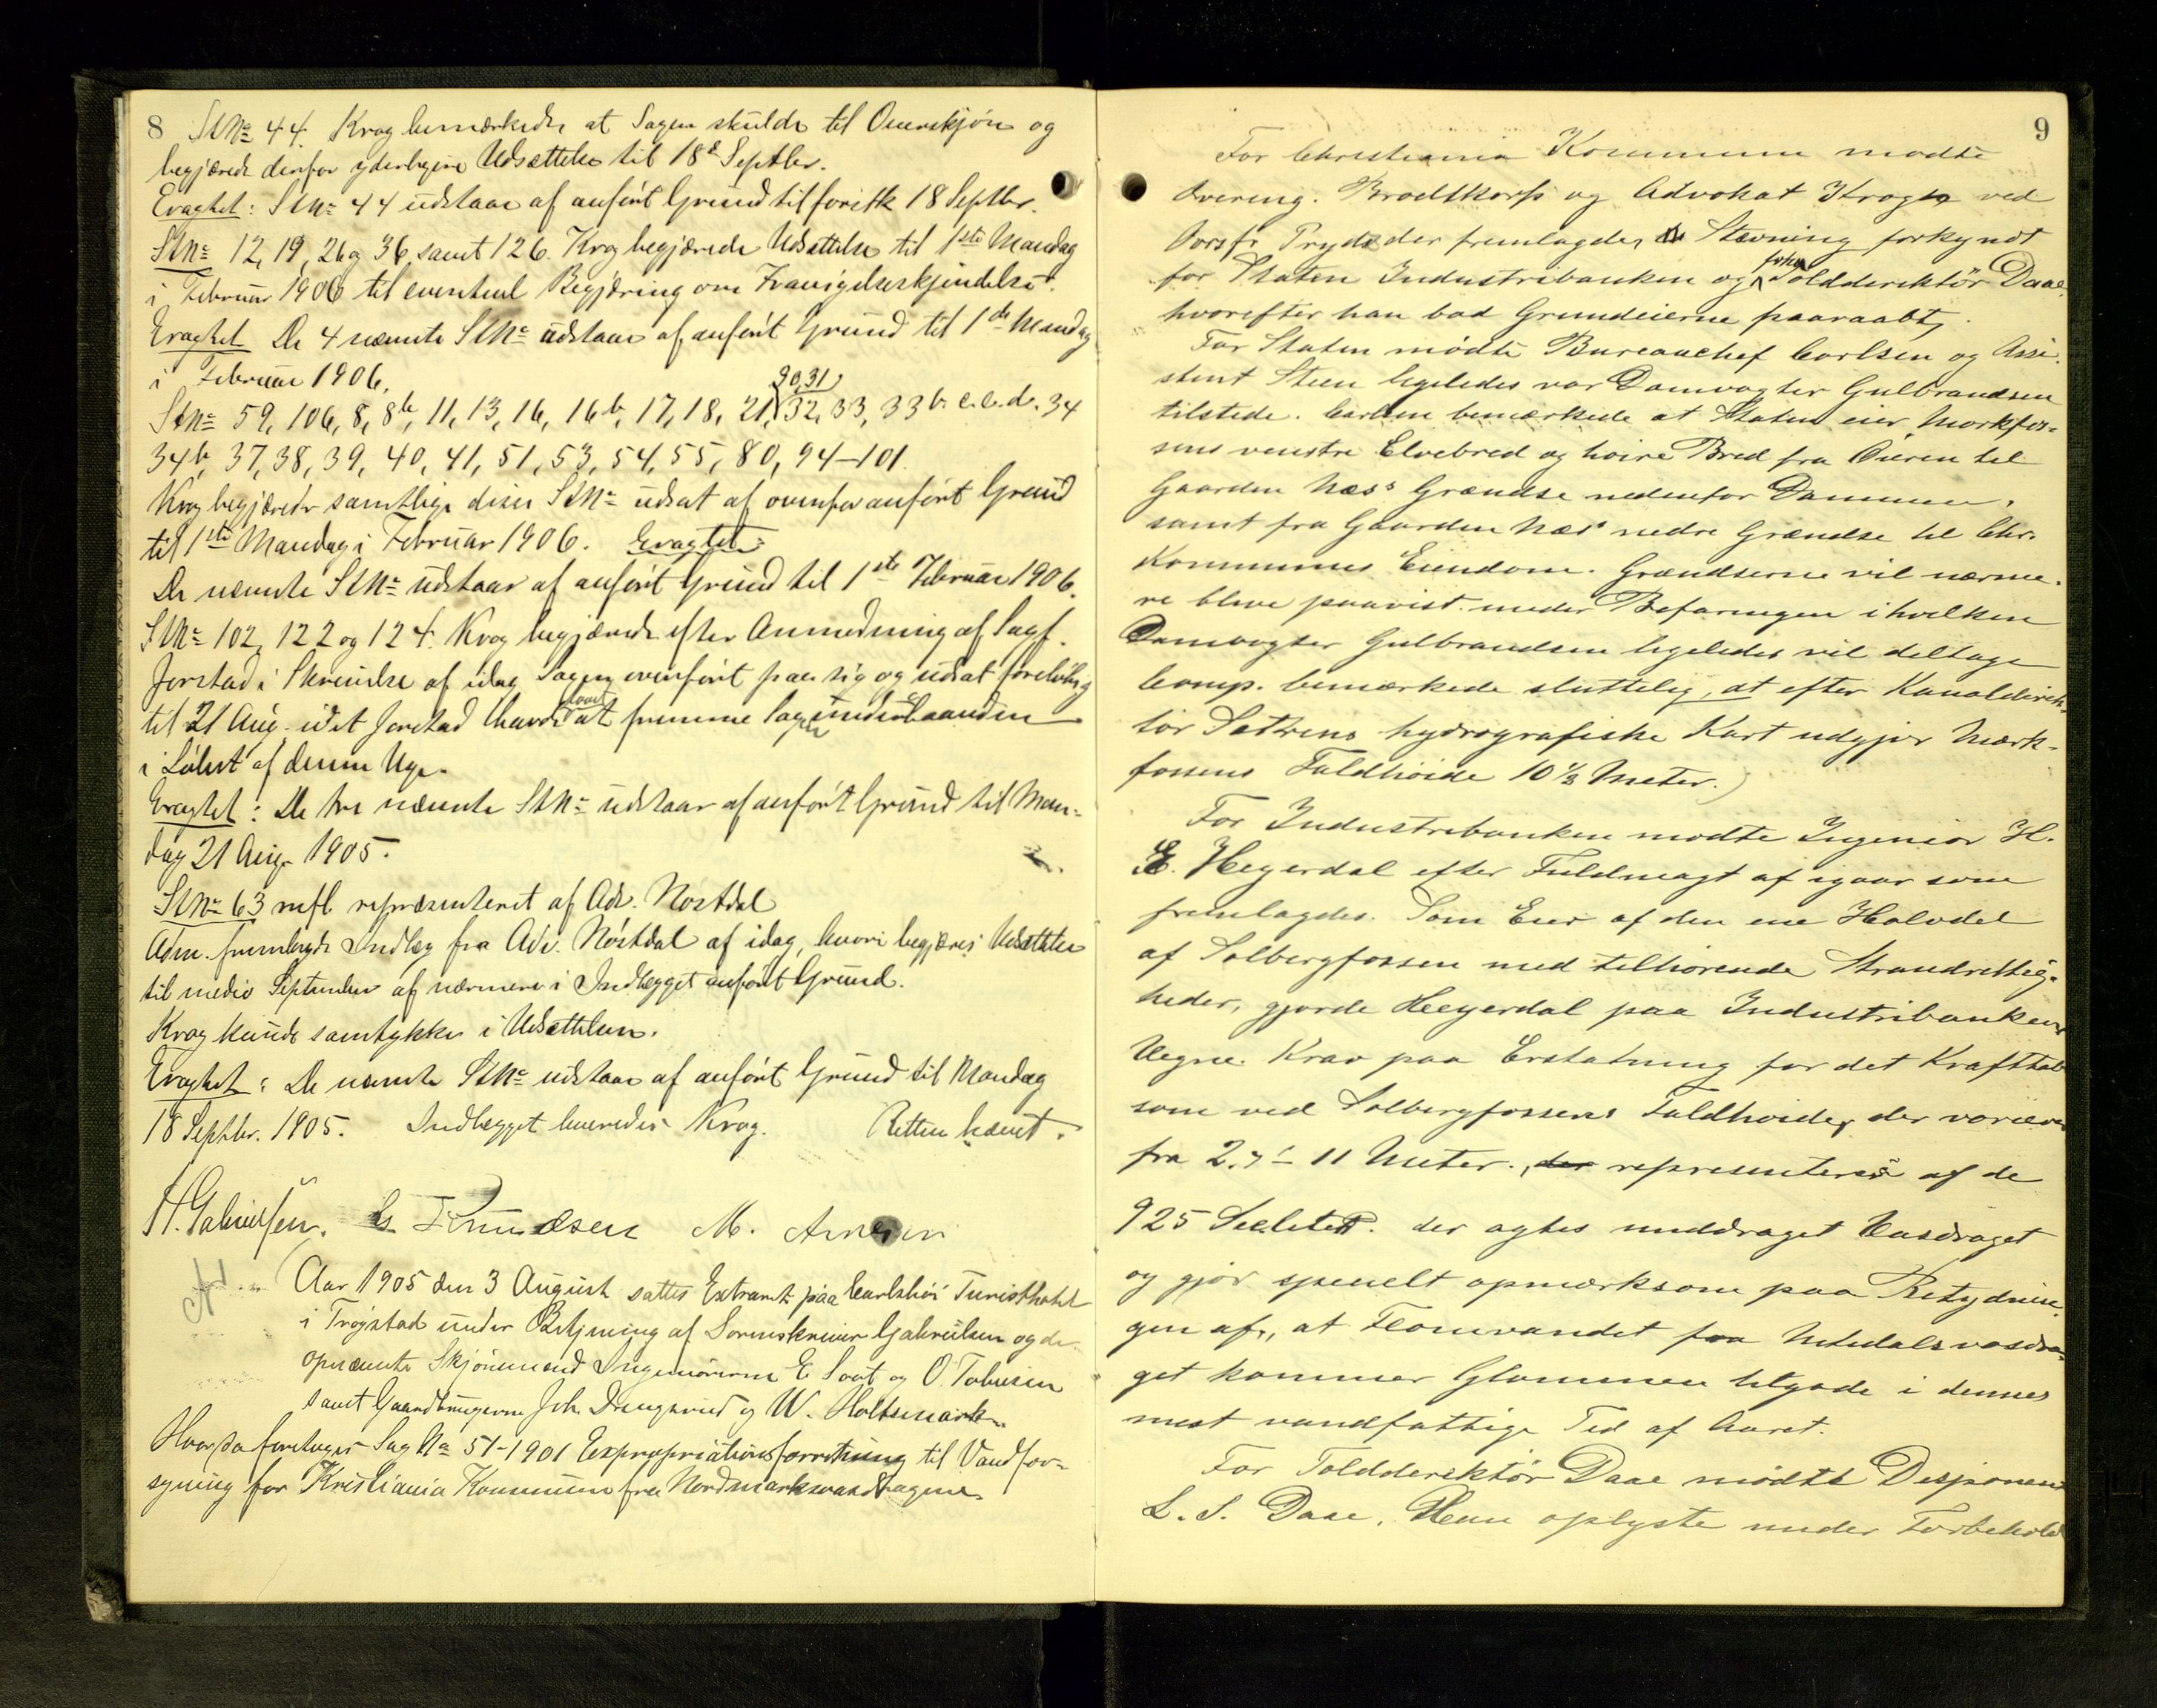 8 StNo 44. Krag bemærkede at Sagen skulde til Overskjøn og
begjærede derfor yderligere Udsættelse til 18de Septbr.
Eragtet: StNo 44 udstaar af anført Grund til foristk 18 Septbr.
StNo 12, 19, 26 og 36 samt 126. Krag begjærede Udsættelse til 1ste Mandag
i Februar 1906 til eventuel Begjæring om Fravigelseskjendelse.
Eragtet De 4 nævnte StNo udstaar af anført Grund til 1ste Mandag
i Februar 1906.
30, 31,
StNo 59, 106, 8, 8b, 11, 13, 16, 16b, 17, 18, 21, 32, 33, 33b. c. c. d. 34
34b, 37, 38, 39, 40, 41, 51, 53, 54, 55, 80, 94–101.
Krag begjærede samtlige disse StNo udsat af ovenfor anført Grund
til 1ste Mandag i Februar 1906. Eragtet:
De nævnte StNo udstaar af anført Grund til 1ste Februar 1906.
StNo 102, 122 og 124. Krag begjærede efter Anmodning af Sagf.
Jorstad i Skrivelse af idag Sagen overført paa sig og udsat foreløbig
til 21 Aug. idet Jorstad havde lovet at fremme Sagen underhaanden
i Løbet af denne Uge.
Eragtet: De tre nævnte StNo udstaar af anført Grund til Man-
dag 21 Aug. 1905.
StNo 63 repræsenteret af Adv. Nöstdal
Adm. fremlagde Indlæg fra Adv. Nöstdal af idag, hvori begjæres Udsættelse
til medio September af nærmere i Indlægget anført Grund.
Krag kunde samtykke i Udsættelsen.
Eragtet: De nævnte StNo udstaar af anført Grund til Mandag
18 Septbr. 1905. Indlægget leveredes Krag. Retten hævet.
H. Gabrielsen. Knudsen M.
Aar 1905 den 3 August sattes Extraret paa Carlshöi Turisthotel
i Trøgstad under Betjening af Sorenskriver Gabrielsen og de
opnævnte Skjönsmænd Ingeniörerne E Soot og O.
samt Gaardbrugerne Joh. og W. Holtsmark.
Hvorpaa foretoges Sag No 51–1901 Expropriationsforretning til Vandfor-
syning for Kristiania Kommune fra Nordmarksvasdragene.
9
For Christiania Kommune mødte
Overing. Brodtkorp og Advokat Krag ved
Ovrsfr Prydz der fremlagde Stevning forkyndt
for Staten Industribanken og Tolddirektör Daae.
hvorefter han bad Grundeierne paaraabt.
For Staten mødte Bureauchef Carlsen og Assi-
stent Steen ligeledes var Damvogter Gulbrandsen
tilstede. Carlsen bemærkede at Staten eier Mørkfos-
sens venstre Elvebred og høire Bred fra Øieren til
Gaarden Næs's Grændse nedenfor Dammen,
samt fra Gaarden Næs' nedre Grændse til Chr.
Kommunes Eiendom. Grændserne vil nærme-
re blive paavist under Befaringen i hvilken
Damvogter Gulbrandsen ligeledes vil deltage
Comp. bemærkede sluttelig, at efter Kanaldirek-
tör Sætrens hydrografiske Kart udgjør Mørk-
fossens Faldhøide 10 1/3 Meter.
For Industribanken mødte Ingeniør H.
E. Heyerdal efter Fuldmagt af igaar som
fremlagdes. Som Eier af den ene Halvdel
af Solbergfossen med tilhørende Strandrettig-
heder, gjorde Heyerdal paa Industribankens
Vegne Krav paa Erstatning for det Krafttab
som ved Solbergfossens Faldhøide, der varierer
fra 2.7 – 11 Meter, repræsenteres af de
925 Sec.liter. der agtes unddraget Vasdraget
og gjør specielt opmærksom paa Betydnin-
gen af, at Flomvandet fra vasdra-
get kommer Glommen tilgode i dennes
mest vandfattige Tid af Aaret.
For Tolddirektör Daae mødte Disponent
L. S. Daae. Han oplyste under Forbehold